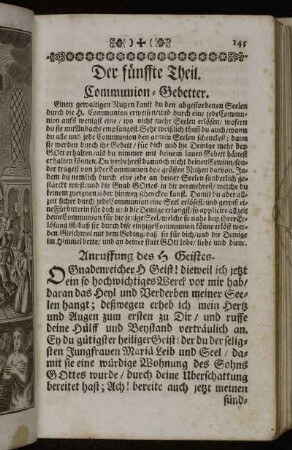 145
Der fünffte Theil.
Communion-Gebetter.
Einen gewaltigen Nutzen kanst du den abgestorbenen Seelen
durch die H. Communion erweisen / und durch eine jede Commu-
nion auffs wenigst eine / wo nicht mehr Seelen erlösen / wofern
du sie mit Andacht empfangest. Sehr weißlich thust du auch / wann
du alle und jede Communion den armen Seelen schenckest; dann
sie werden durch ihr Gebett / für dich und die Deinige mehr bey
GOtt erhalten / als du immer mit deinem lauen Gebett hättest
erhalten können. Du verliehrest dannoch nicht deinen Gewinn / son-
der tragest von jeder Communion den grösten Nutzen darvon. In-
dem du nemlich durch eine jede an deiner Seelen sonderlich ge-
stärckt wirst / und die Gnad GOttes in dir vermehrest / welche du
keinem zueignen oder hinweg schencken kanst. Damit du aber all-
zeit durch jede Communion eine Seel erlösest / und
zeit deine Communion solcher Seele, welche so nahe bey ihrer Er-
lösung ist / daß sie durch diese eintzige Communion könne erlöst wer-
den. Gleichwol mit dem Geding / daß sie für dich / und die Deinige
im Himmel bette / und an deiner statt GOtt lobe / liebe und diene.
Anruffung des H. Geistes.
O Gnadenreicher H Geist! dieweil ich jetzt
ein so hochwichtiges Werck vor mir hab /
daran das Heyl und Verderben meiner See-
len hangt; deßwegen erheb ich mein Hertz
und Augen zum ersten zu Dir / und ruffe
deine Hülff und Beystand verträulich an.
Ey du gütigster heiliger Geist: der du der selig-
sten Jungfrauen Mariä Leib und Seel / da-
mit sie eine würdige Wohnung des Sohns
GOttes wurde / durch deine Uberschattung
bereitet hast; Ach! bereite auch jetzt meinen
sünd-